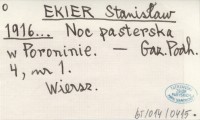 EKIER Stanisław
1916... Noc pasterska
w Poroninie. — Gaz. Podh.
4, nr 1.
Wiersz.